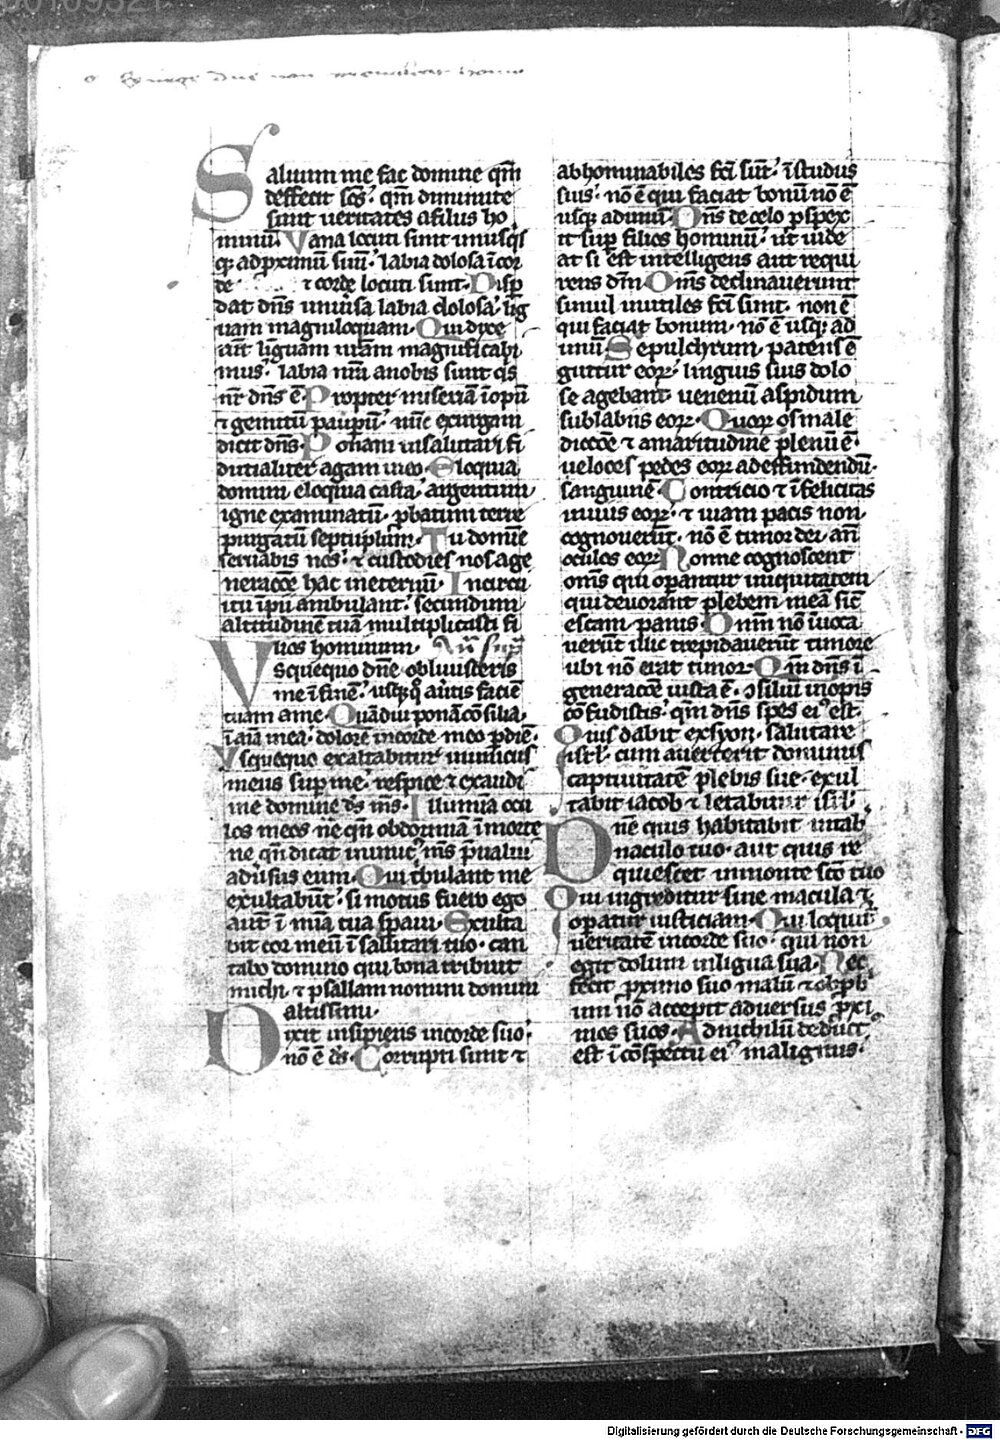 Saluum me fac domine qm̄
deffecit scs̄· qm̄ diminute
sunt ueritates a filiis ho
minū· Vana locuti sunt unusqͥs
qꝫ ad ꝓximū suū· labia dolosa ī cor
de ⁊ corde locuti sunt· Disp
dat dn̄s uniūsa labia dolosa· lig
uam magniloquam· Qui dixe
rūt liguam nr̄am magnificabi
mus· labia nr̄a a nobis sunt qͥs
nr̄ dn̄s ē· Propter miseriā īopū
⁊ gemitū paup̄ū· nūc exurgam
dicit dn̄s· Ponam ī salutari fi
ducialiter agam ī eo· Eloquia
domini eloquia casta· argentum
igne examinatū· ꝓbatum terre
purgatū septuplum· Tu domīe
seruabis nos· ⁊ custodies nos a ge
neracōe hac in eternū· In circu
itu īpii ambulant· secundum
altitudinē tuā multiplicasti fi
lios hominum·
Vsquequo dn̄e obliuisceris
me ī finē· usqꝫqͦ au̅tis faciē
tuam a me· Quādiu ponā cōsilia
ī aīa mea· dolorē in corde meo ꝑ diē·
Vsquequo exaltabitur inimicus
meus sup me· respice ⁊ exaudi
me domine ds̄ ms̄· Illumīa ocu
los meos ne qn̄ obdormiā ī morte
ne qn̄ dicat inimicꝰ ms̄ p̄ualui
adusus eum· Qui tͥbulant me
exultabūt· si motus fuero ego
aūt ī mīa tua spaui· Exulta
bit cor meū ī salutari tuo· can
tabo domino qui bona tribuit
michi· ⁊ psallam nomini domini
altissimi·
Dixit insipiens in corde suo·
nō ē ds̄· Corrupti sunt ⁊
abhominabiles fcī sūt· ī studiis
suis· nō ē qui faciat bonū nō ē
usqꝫ ad unū· Dn̄s de celo ꝓspex
it sup filios hominū· ut uide
at si est intelligens aut requi
rens dm̄· Om̄s declinauerunt
simul inutiles fcī sunt· non ē
qui faciat bonum· nō ē usqꝫ ad
unū Sepulchrum patens ē
guttur eoꝝ· linguis suis dolo
se agebant· uenenū aspidum
sub labiis eoꝝ· Quoꝝ os male
diccōe ⁊ amaritudine plenū ē·
ueloces pedes eoꝝ ad effundendū·
sanguinē· Contricio ⁊ īfelicitas
in uiis eoꝝ· ⁊ uiam pacis non
cognouerūt· nō ē timor dei· an̄
oculos eoꝝ Nonne cognoscent
om̄s qui opantur iniquitatem
qui deuorant plebem meā sic̄
escam panis· Dnm̄ nō īuoca
uerūt illic trepidauerūt timore
ubi nō erat timor· Qm̄ dn̄s ī
generacōe iusta ē· ꝯsiliū inopis
cōfudistis· qm̄ dn̄s spes eiꝰ est·
Quis dabit ex syon· salutare
isrl̄· cum auerterit dominus
captiuitatē plebis sue· exul
tabit iacob ⁊ letabitur isrl̄·
Dnē quis habitabit ī tab
naculo tuo· aut quis re
quiescet in monte sc̄o tuo
Qui ingreditur sine macula ⁊
opatur iusticiam· Qui loquit
ueritatē in corde suo· qui non
egit dolum in ligua sua· Nec
fecit ꝓximo suo malū ⁊ obꝓb
ium nō accepit aduersus ꝓxi
mos suos· Ad nichilū deduct
est ī cōspectu eiꝰ malignus·
Digitalisierung gefördert durch die Deutsche Forschungsgemeinschaft - DFG